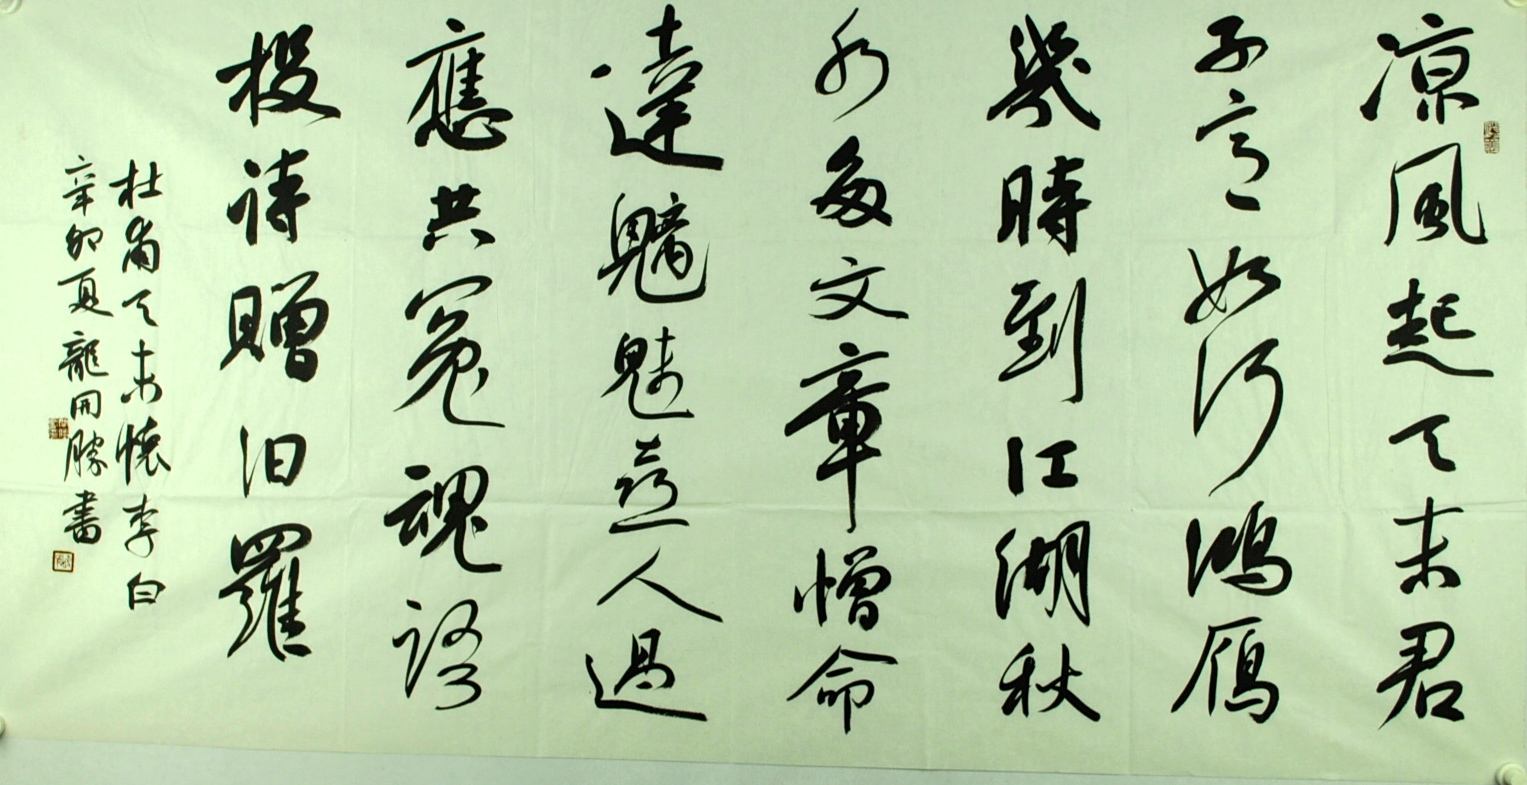 凉風起天末君
子意如何鴻鴈
幾時到江湖秋
水多文章憎命
達魑魅喜人過
應共冤魂語
投詩贈汨羅
杜甫天末懷李白
辛卯夏龍開勝書